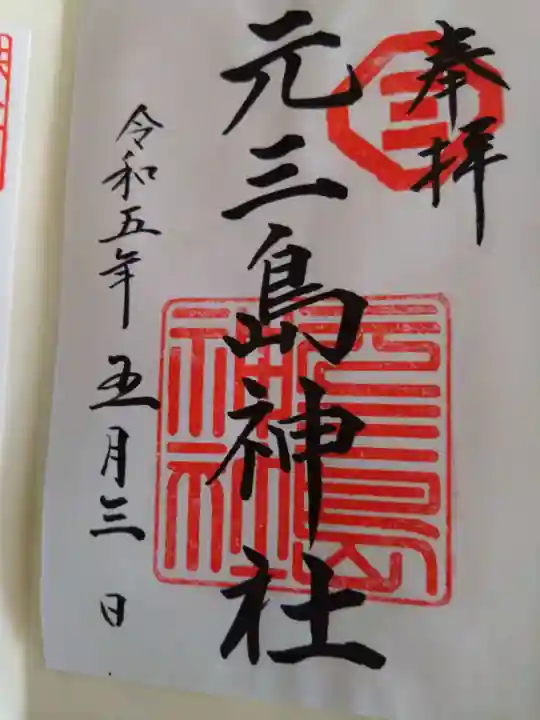 奉拝
三
元三島神社
令和五年五月三日